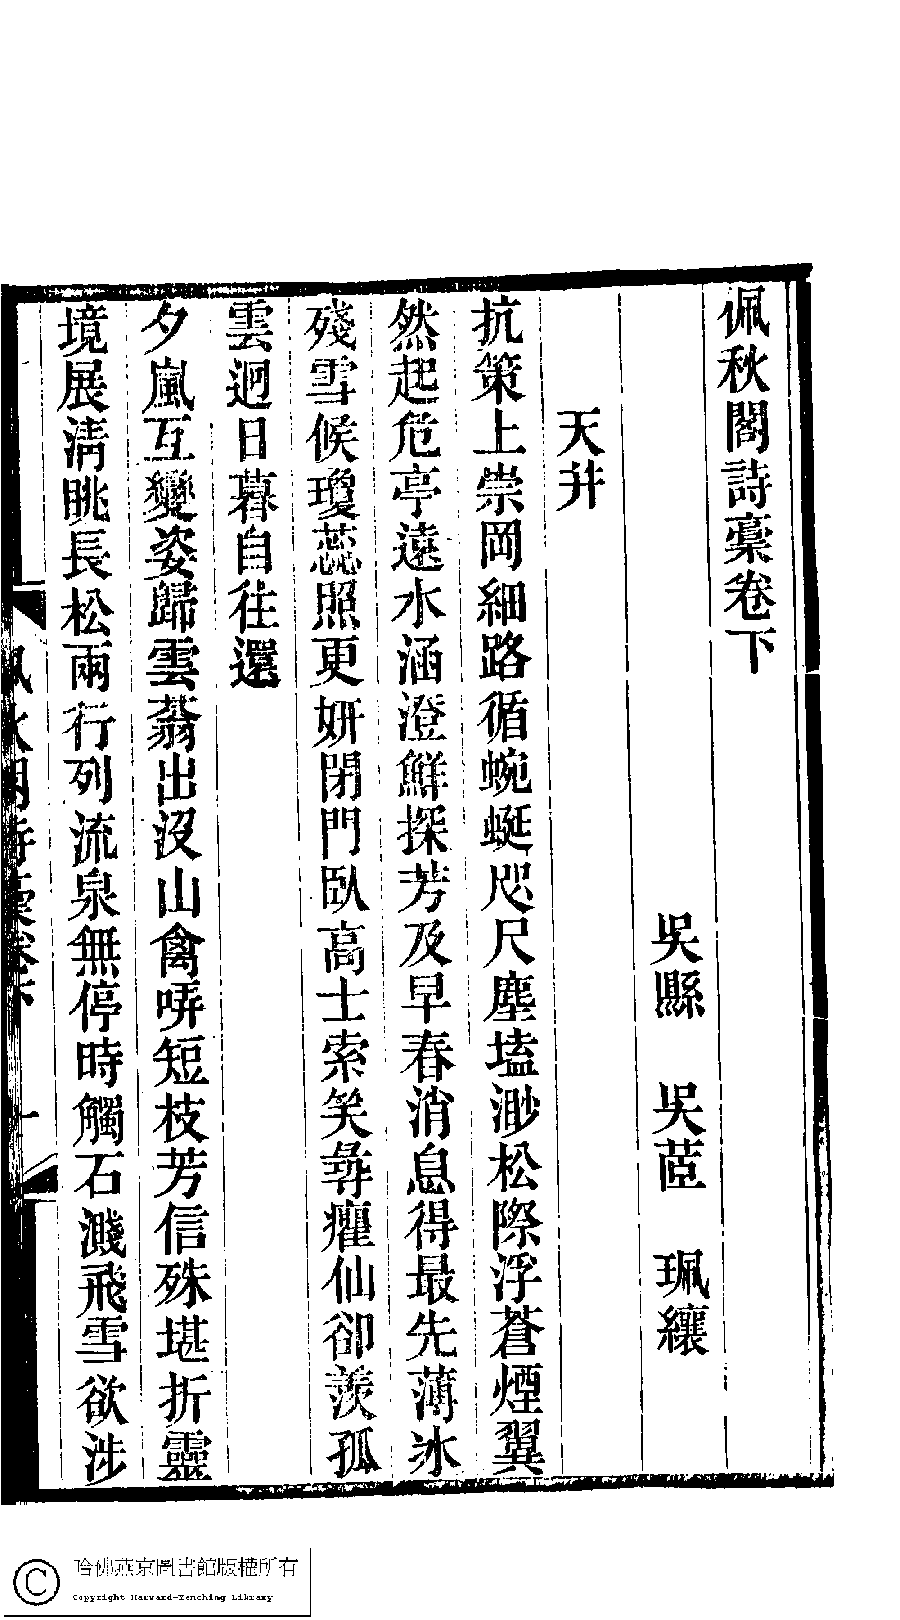 佩秋閣詩稾卷下
吳縣　吳茝　珮纕
天井
抗策上崇岡細路循蜿蜒咫尺塵壒渺松際浮蒼煙翼
然起危亭遠水涵澄鮮探芳及早春消息得最先薄冰
殘雪候瓊蕊照更妍閉門臥高士索笑尋癯仙卻羨孤
雲迥日暮自往還
夕嵐互變姿歸雲蓊出沒山禽哢短枝芳信殊堪折靈
境展清眺長松兩行列流泉無停時觸石濺飛雪欲涉
佩秋閣詩稾卷下
一
哈佛燕京圖書館版權所有
Copyright Harvard-Yenching Library